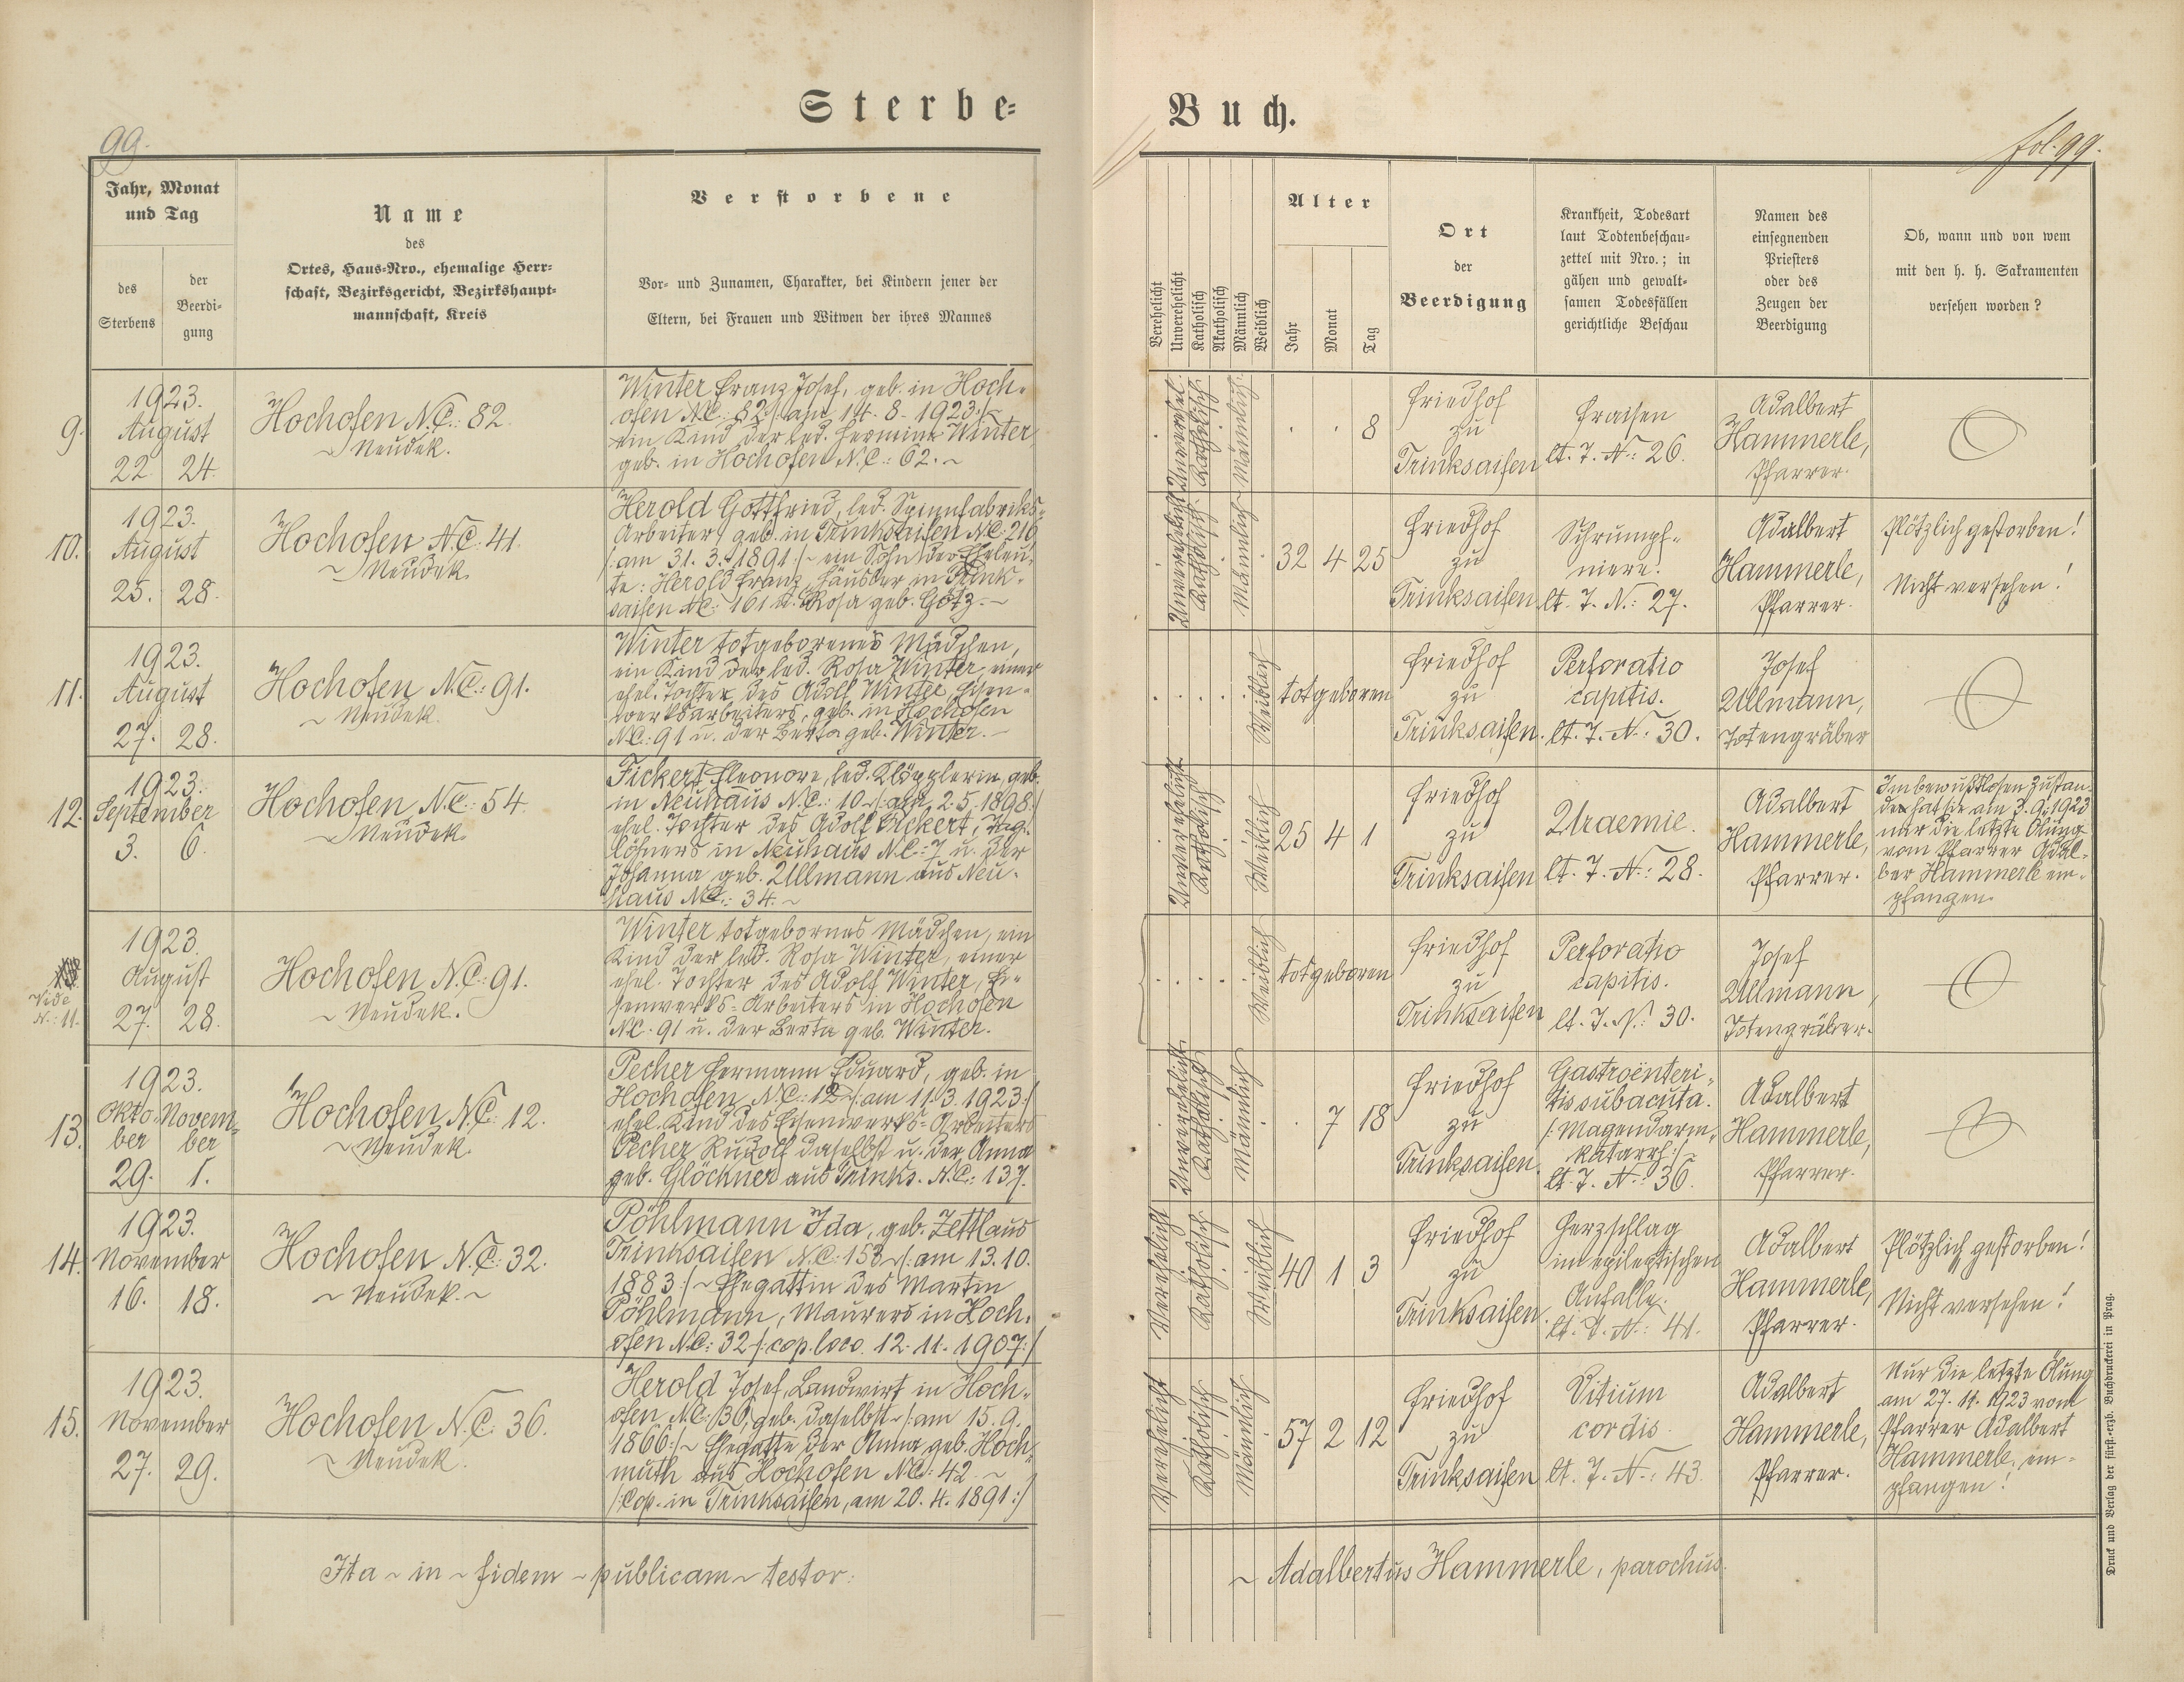 Sterbe-
Buch.
99.
fol. 99.
Jahr, Monat
und Tag
des
Sterbens
der
Beerdi-
gung
Name
des
Ortes, Haus-Nro., ehemalige Herr-
schaft, Bezirksgericht, Bezirkshaupt-
mannschaft, Kreis
Verstorbene
Vor- und Zunamen, Charakter, bei Kindern jener der
Eltern, bei Frauen und Witwen der ihres Mannes
Verehelicht
Unverehelicht
Katholisch
Akatholisch
Männlich
Weiblich
Alter
Jahr
Monat
Tag
Ort
der
Beerdigung
Krankheit, Todesart
laut Todtenbeschau-
zettel mit Nro.; in
gähen und gewalt-
samen Todesfällen
gerichtliche Beschau
Namen des
einsegnenden
Priesters
oder des
Zeugen der
Beerdigung
Ob, wann und von wem
mit den h. h. Sakramenten
versehen worden?
9.
1923.
August
22 24.
Hochofen N.C.: 82.
~ Neudek.
Winter Franz Josef, geb. in Hoch-
ofen N.C.: 82 /: am 14. 8. 1923 :/ ~
ein Kind der led. Hermine Winter,
geb. in Hochofen N.C.: 62. ~
Unverehel.
Katholisch
Männlich
. . 8
Friedhof
zu
Trinksaifen
Fraisen
lt. T. N.: 26.
Adalbert
Hammerle,
Pfarrer.
10.
1923.
August
25. 28.
Hochofen N.C.: 41.
~ Neudek.
Herold Gottfried, led. Spinnfabriks-
Arbeiter, geb. in Trinksaifen N.C.: 216
/: am 31. 3. 1891 :/ ~ ein Sohn der Eheleu-
te: Herold Franz, Häusler in Trink-
saifen N.C.: 161 u. Rosa geb. Götz. ~
Unverehelicht
Katholisch
Männlich
32 4 25
Friedhof
zu
Trinksaifen
Schrumpf-
niere.
lt. T. N.: 27.
Adalbert
Hammerle,
Pfarrer.
Plötzlich gestorben!
Nicht versehen!
11.
1923.
August
27. 28.
Hochofen N.C.: 91.
~ Neudek.
Winter totgeborenes Mädchen,
ein Kind der led. Rosa Winter, einer
ehel. Tochter des Adolf Winter, Eisen-
werksarbeiters, geb. in Hochofen
N.C.: 91 u. der Berta geb. Winter. ~
Weiblich
totgeboren
Friedhof
zu
Trinksaifen.
Perforatio
capitis.
lt. T. N.: 30.
Josef
Ullmann,
Totengräber
12.
1923.
September
3. 6.
Hochofen N.C.: 54.
~ Neudek.
Fickert Eleonore, led. Klöpplerin, geb.
in Neuhaus N.C.: 10 ~ /: am 2. 5. 1898 :/
ehel. Tochter des Adolf Fickert, Tag-
löhners in Neuhaus N.C.: 7 u. der
Johanna geb. Ullmann aus Neu-
haus N.C.: 34. ~
Unverehelicht
Katholisch
Weiblich
25 4 1
Friedhof
zu
Trinksaifen
Uraemie.
lt. T. N.: 28.
Adalbert
Hammerle,
Pfarrer.
Im bewußtlosen Zustan-
de hat sie am 3. 9. 1923
nur die letzte Ölung
vom Pfarrer Adal-
ber Hammerle em-
pfangen.
Vide
N.: 11.
1923.
August
27. 28.
Hochofen N.C.: 91.
~ Neudek.
Winter totgebornes Mädchen, ein
Kind der led. Rosa Winter, einer
ehel. Tochter des Adolf Winter, Ei-
senwerks-Arbeiters in Hochofen
N.C.: 91 u. der Berta geb. Winter.
Weiblich
totgeboren
Friedhof
zu
Trinksaifen
Perforatio
capitis.
lt. T. N.: 30.
Josef
Ullmann,
Totengräber.
13.
1923.
Okto- Novem-
ber ber
29. 1.
Hochofen N.C.: 12.
~ Neudek.
Pecher Hermann Eduard, geb. in
Hochofen N.C.: 12 ~ /: am 11. 3. 1923 :/
ehel. Kind des Eisenwerks-Arbeiters
Pecher Rudolf daselbst u. der Anna
geb. Glöckner aus Trinks. N.C.: 137.
Unverehelicht
Katholisch
Männlich
. 7 18
Friedhof
zu
Trinksaifen.
Gastroënteri-
tis subacuta.
/: Magendarm-
katarrh :/ ~
lt. T. N.: 36.
Adalbert
Hammerle,
Pfarrer.
14.
1923.
November
16. 18.
Hochofen N.C.: 32.
~ Neudek. ~
Pöhlmann Ida, geb. Zettl aus
Trinksaifen N.C.: 153 ~ /: am 13. 10.
1883 :/ ~ Ehegattin des Martin
Pöhlmann, Maurers in Hoch-
ofen N.C.: 32 /: cop. loco 12. 11. 1907 :/
Verehelicht
Katholisch
Weiblich
40 1 3
Friedhof
zu
Trinksaifen.
Herzschlag
im epileptischen
Anfalle.
lt. T. N.: 41.
Adalbert
Hammerle,
Pfarrer.
Plötzlich gestorben!
Nicht versehen!
15.
1923.
November
27. 29.
Hochofen N.C.: 36.
~ Neudek.
Herold Josef, Landwirt in Hoch-
ofen N.C.: 36, geb. daselbst ~ /: am 15. 9.
1866 :/ ~ Ehegatte der Anna geb. Hoch-
muth aus Hochofen N.C.: 42. ~
/: Cop. in Trinksaifen, am 20. 4. 1891 :/
Verehelicht
Katholisch
Männlich
57 2 12
Friedhof
zu
Trinksaifen
Vitium
cordis.
lt. T. N.: 43.
Adalbert
Hammerle,
Pfarrer.
Nur die letzte Ölung
am 27. 11. 1923 vom
Pfarrer Adalbert
Hammerle, em-
pfangen!
Ita ~ in ~ fidem ~ publicam ~ testor:
~ Adalbertus Hammerle, parochus.
Druck und Verlag der fürst.-erzb. Buchdruckerei in Prag.